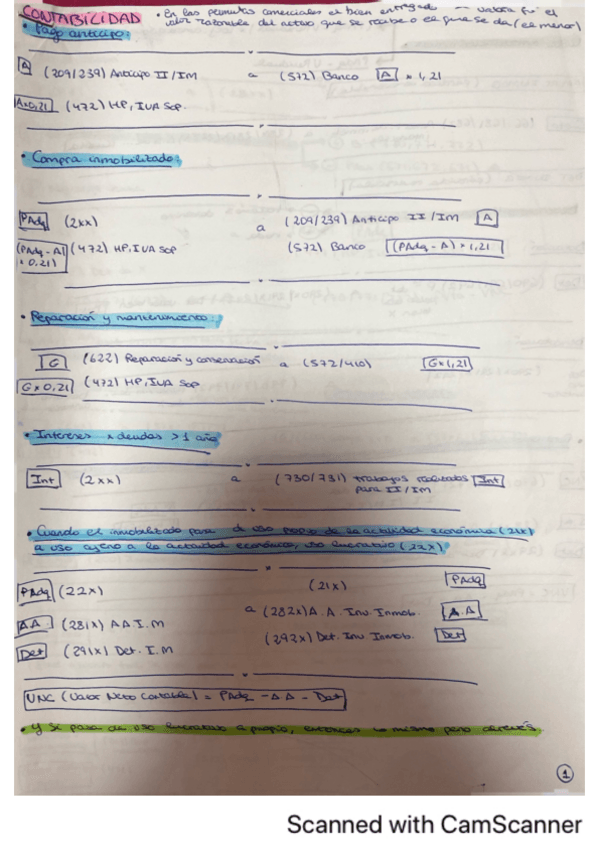 CONTABILIDAD • En las permutas comerciales el bien entregado — valora por el
valor razonable del activo que se recibe o el que se da (el menor)
• Pago anticipo:
A (209/239) Anticipo II/IM a (572) Banco A x 1,21
Ax0,21 (472) HP, IVA Sop.
• Compra inmobilizado:
PAdq (2xx) a (209/239) Anticipo II/IM A
(PAdq - A) x 0,21 (472) HP, IVA Sop (572) Banco (PAdq - A) x 1,21
• Reparación y mantenimiento:
G (622) Reparación y conservación a (572/410) G x 1,21
G x 0,21 (472) HP, IVA Sop
• Intereses x deudas > 1 año
Int (2xx) a (730/731) Trabajos realizados Int
para II/IM
• Cuando el inmobilizado pasa de uso propio de la actividad económica (21x)
a uso ajeno a la actividad económica, uso lucrativo (22x):
PAdq (22x) (21x) PAdq
a (282x) A.A. Inv Inmob. A.A
AA (281x) A A I.M (292x) Det. Inv Inmob. Det
Det (291x) Det. I.M
VNC (Valor Neto Contable) = PAdq - AA - Det
• Y si pasa de uso lucrativo a propio, entonces lo mismo pero al revés.
1
Scanned with CamScanner